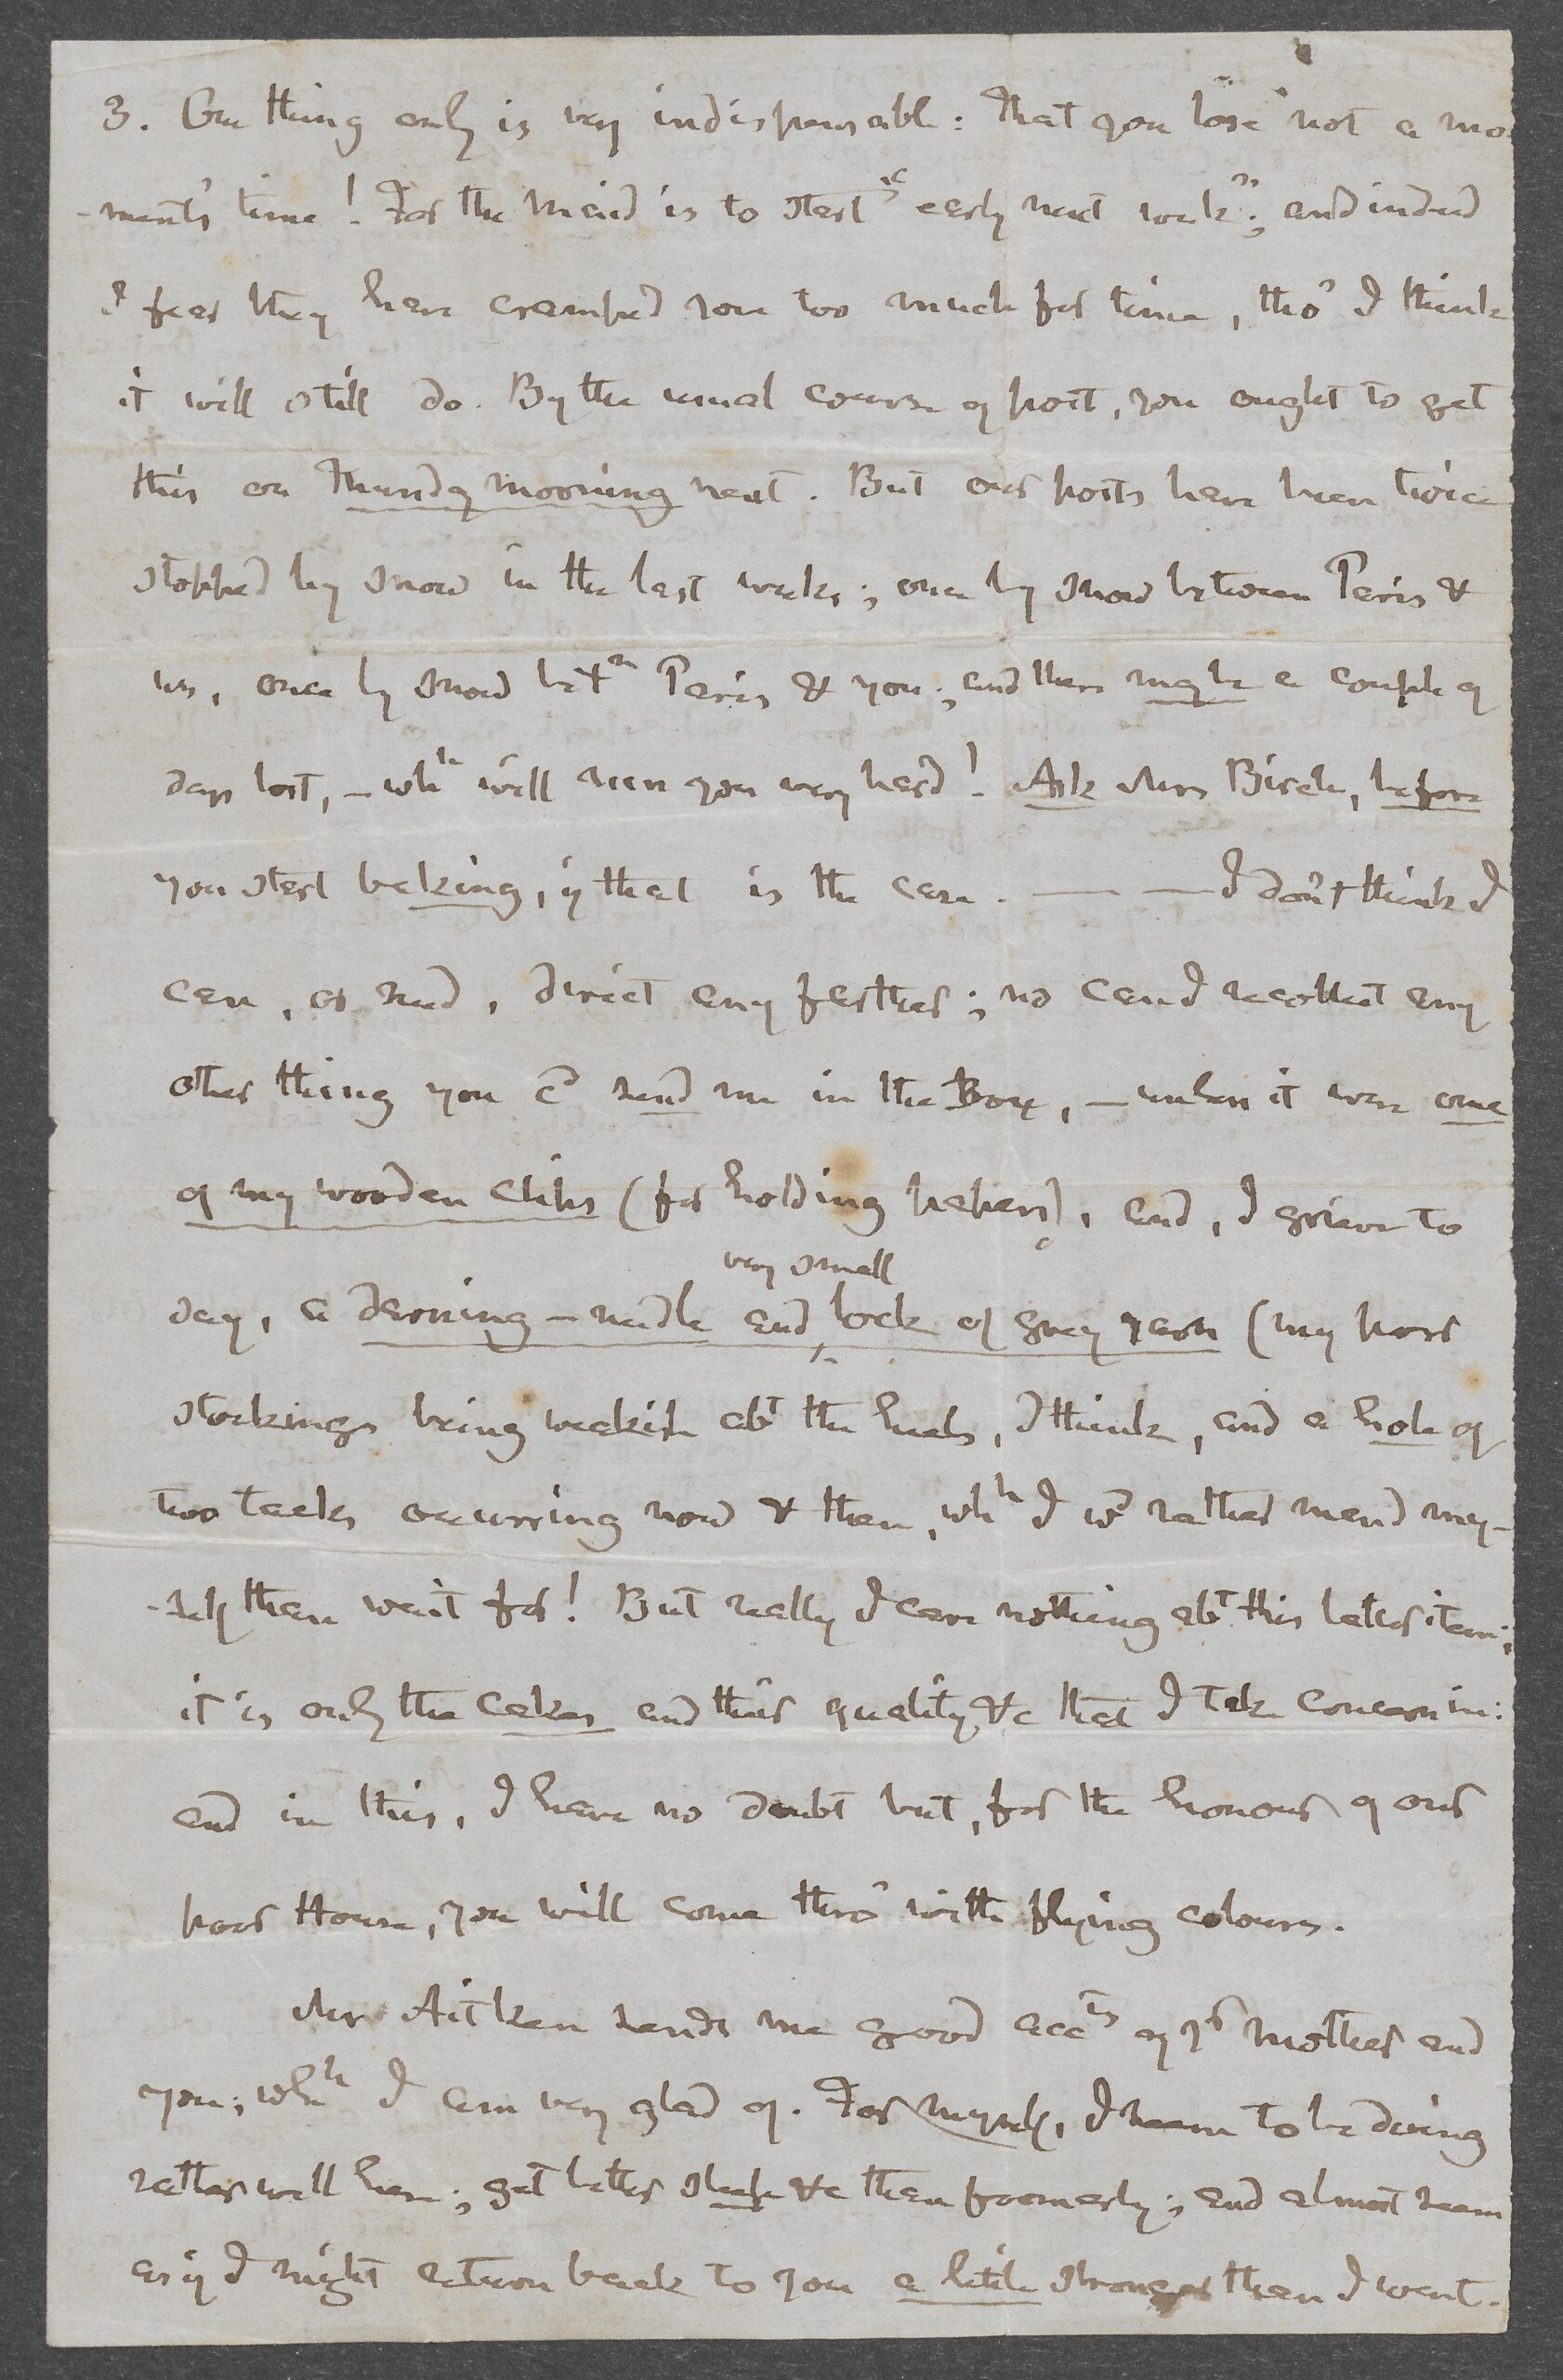 3. One thing only is very indispensable: That you "lose" not a mo-
-ment's time! For the Maid is to start "early next week"; and indeed
I fear they have cramped you too much for time, tho' I think
it will still do. By the usual course of post, you ought to get
this on Thursdy morning next. But our posts have been twice
stopped by snow in the last weeks; once by snow between Paris &
us, once by snow betwn Paris & you; and there may be a couple of
days lost, – whh will run you very hard! Ask Mrs Birch, before
you start baking, if that is the case. — — I don't think I
can, or need, direct any farther; no can I recollect any
other thing you cd send me in the Box, – unless it were one
of my wooden clips (for holding papers), and, I grieve to
very small
say, a darning-needle and lock of grey yarn (my poor
stockings being weakish abt the heels, I think, and a hole of
two tacks occurring now & then, whh I wd rather mend my-
-self than wait for! But really I care nothing abt this latter item;
it is only the cakes and their quality &c that I take concern in:
and in this, I have no doubt but, for the honour of our
poor House, you will come thro' with flying colours.
Mrs Aitken sends me good accts of yr Mother and
you; whh I am very glad of. For myself, I seem to be doing
rather well here; get better sleep &c than formerly; and almost seem
as if I might return back to you a little stronger than I went.